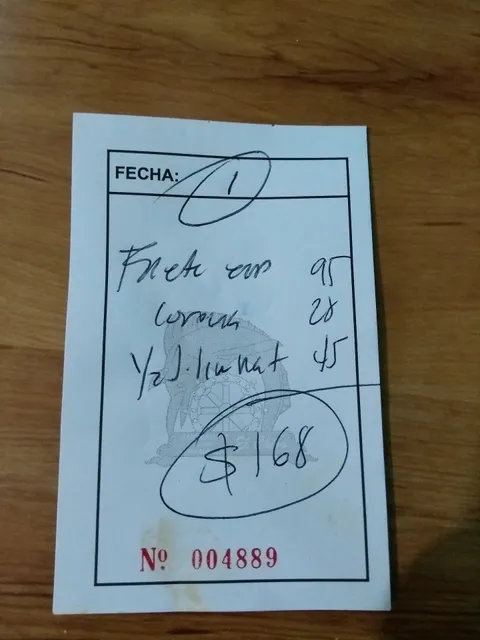 FECHA: 1
Filete emp 95
corona 28
1/2 J. lim nat 45
$168
Nº 004889